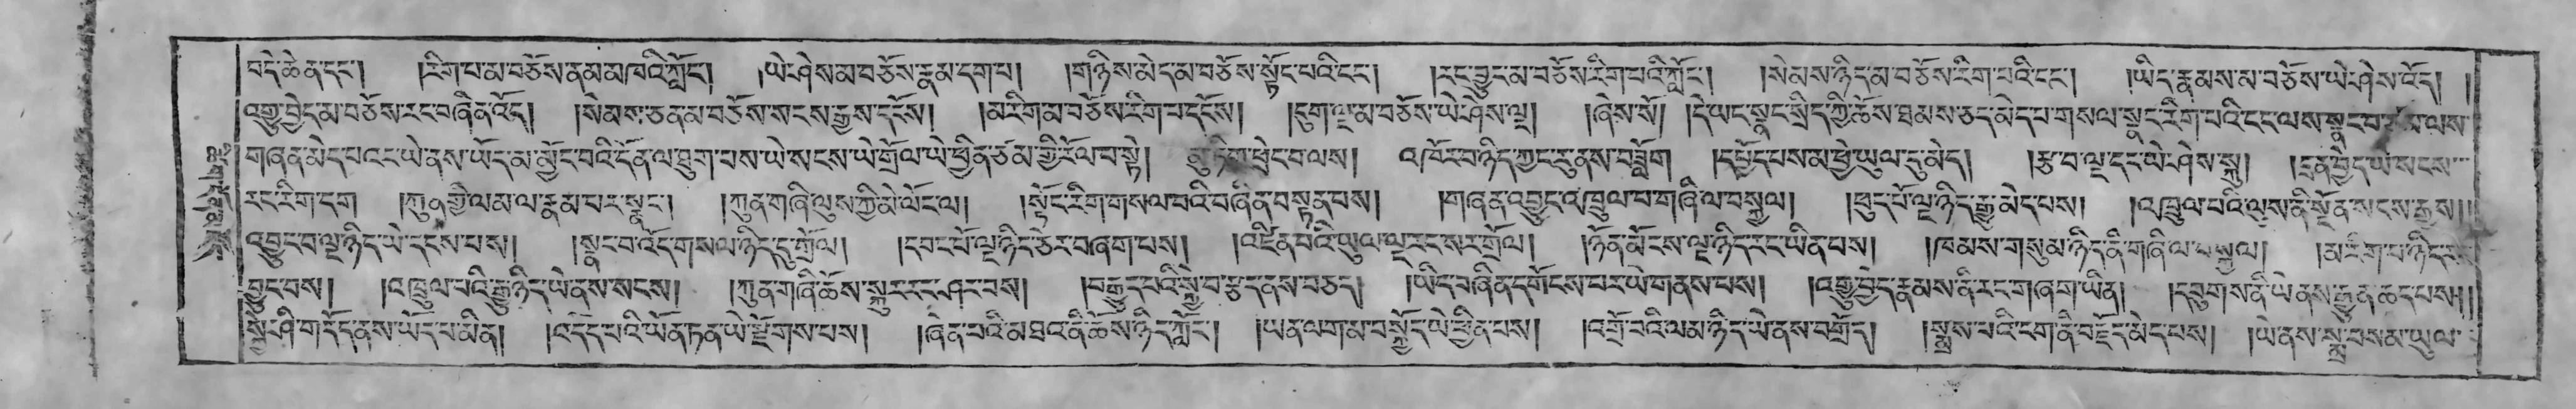 བདེ་ཆེན་དང་། །རིག་པ་མ་བཅོས་ནམ་མཁའི་ཀློང་། །ཡེ་ཤེས་མ་བཅོས་རྣམ་དག་པ། །གཉིས་མེད་མ་བཅོས་སྟོང་པའི་ངང་། །རང་བྱུང་མ་བཅོས་རིག་པའི་ཀློང་། །སེམས་ཉིད་མ་བཅོས་རིག་པའི་ངང་། །ཡིད་རྣམས་མ་བཅོས་ཡེ་ཤེས་འོད། །
འགྱུ་བྱེད་མ་བཅོས་རང་བཞིན་འོད། །སེམས་ཅན་མ་བཅོས་སངས་རྒྱས་དངོས། །མ་རིག་མ་བཅོས་རིག་པ་དངོས། །དུག་ལྔ་མ་བཅོས་ཡེ་ཤེས་ལྔ། །ཞེས་སོ། །དེ་ཡང་སྣང་སྲིད་ཀྱི་ཆོས་ཐམས་ཅད་མེད་པ་གསལ་སྣང་རིག་པའི་ངང་ལས་སྣང་བ་ལས་
གཞན་མེད་པ་འང་ཡེ་ནས་ཡོད་མ་མྱོང་བའི་དོན་ལ་ཐུག་པས་ཡེ་སངས་ཡེ་གྲོལ་ཡེ་ཕྱིན་ཙམ་གྱི་རོལ་བ་སྟེ། མུ་ཏིག་ཕྲེང་བ་ལས། འཁོར་བ་ཉིད་ཀྱང་དུནས་བཟློག །དཔྱོད་པས་མ་ཕྱེ་ཡུལ་དུ་མེད། །རྩ་བ་ལྔ་དང་ཡེ་ཤེས་སྐུ། །དྲན་བྱེད་ཡེ་སངས་
རང་རིག་དག །ཀུན་གྱི་ལམ་ལ་རྣམ་པར་སྣང་། །ཀུན་གཞི་ལུས་ཀྱི་མེ་ལོང་ལ། །སྟོང་རིག་གསལ་བའི་བཞིན་བསྟན་པས། །གཞན་འབྱུང་འཁྲུལ་པ་གཞི་ལ་བསྐྱལ། །ཕུང་པོ་ལྔ་ཉིད་རྒྱུ་མེད་པས། །འཁྲུལ་པའི་ལུས་ནི་སྔོན་སངས་རྒྱས། །
འབྱུང་བ་ལྔ་ཉིད་ཡེ་དངས་པས། །སྣང་བ་འོད་གསལ་ཉིད་དུ་གྲོལ། །དབང་པོ་ལྔ་ཉིད་ཅེར་བཞག་པས། །འཛིན་པའི་ཡུལ་ལྔ་རང་སར་གྲོལ། །ཉོན་མོངས་ལྔ་ཉིད་རང་ཡིན་པས། །ཁམས་གསུམ་ཉིད་ནི་གཞི་ལ་བསྐྱལ། །མ་རིག་པ་ཉིད་
བྱུང་བས། །འཁྲུལ་པའི་རྒྱུ་ཉིད་ཡེ་ནས་སངས། །ཀུན་གཞི་ཆོས་སྐུར་རང་ཤར་བས། །བརྒྱུད་པའི་སྐྱེ་བ་རྩ་ད་ནས་བཅད། །ཡིད་བཞིན་དགོངས་པར་ཡེ་གནས་པས། །འགྱུ་བྱེད་རྣམས་ནི་རང་གཞག་ཡིན། །དབུགས་ནི་ཡེ་ནས་རྒྱུན་ཆད་པས། །
སྐྱེ་ཤི་ག་དོད་ནས་ཡོད་པ་མིན། །འདོད་པའི་ཡོན་ཏན་ཡེ་རྫོགས་པས། །ཞེན་པའི་མཐའ་ནི་ཆོས་ཉིད་ཀློང་། །ཡན་ལག་མ་བསྐྱོད་ཡེ་ཕྱིན་པས། །འགྲོ་བའི་ལམ་ཉིད་ཡེ་ནས་བགྲོད། །སྨྲས་པའི་ངག་ནི་བརྗོད་མེད་པས། །ཡེ་ནས་སྨྲ་བསམ་ཡུལ་